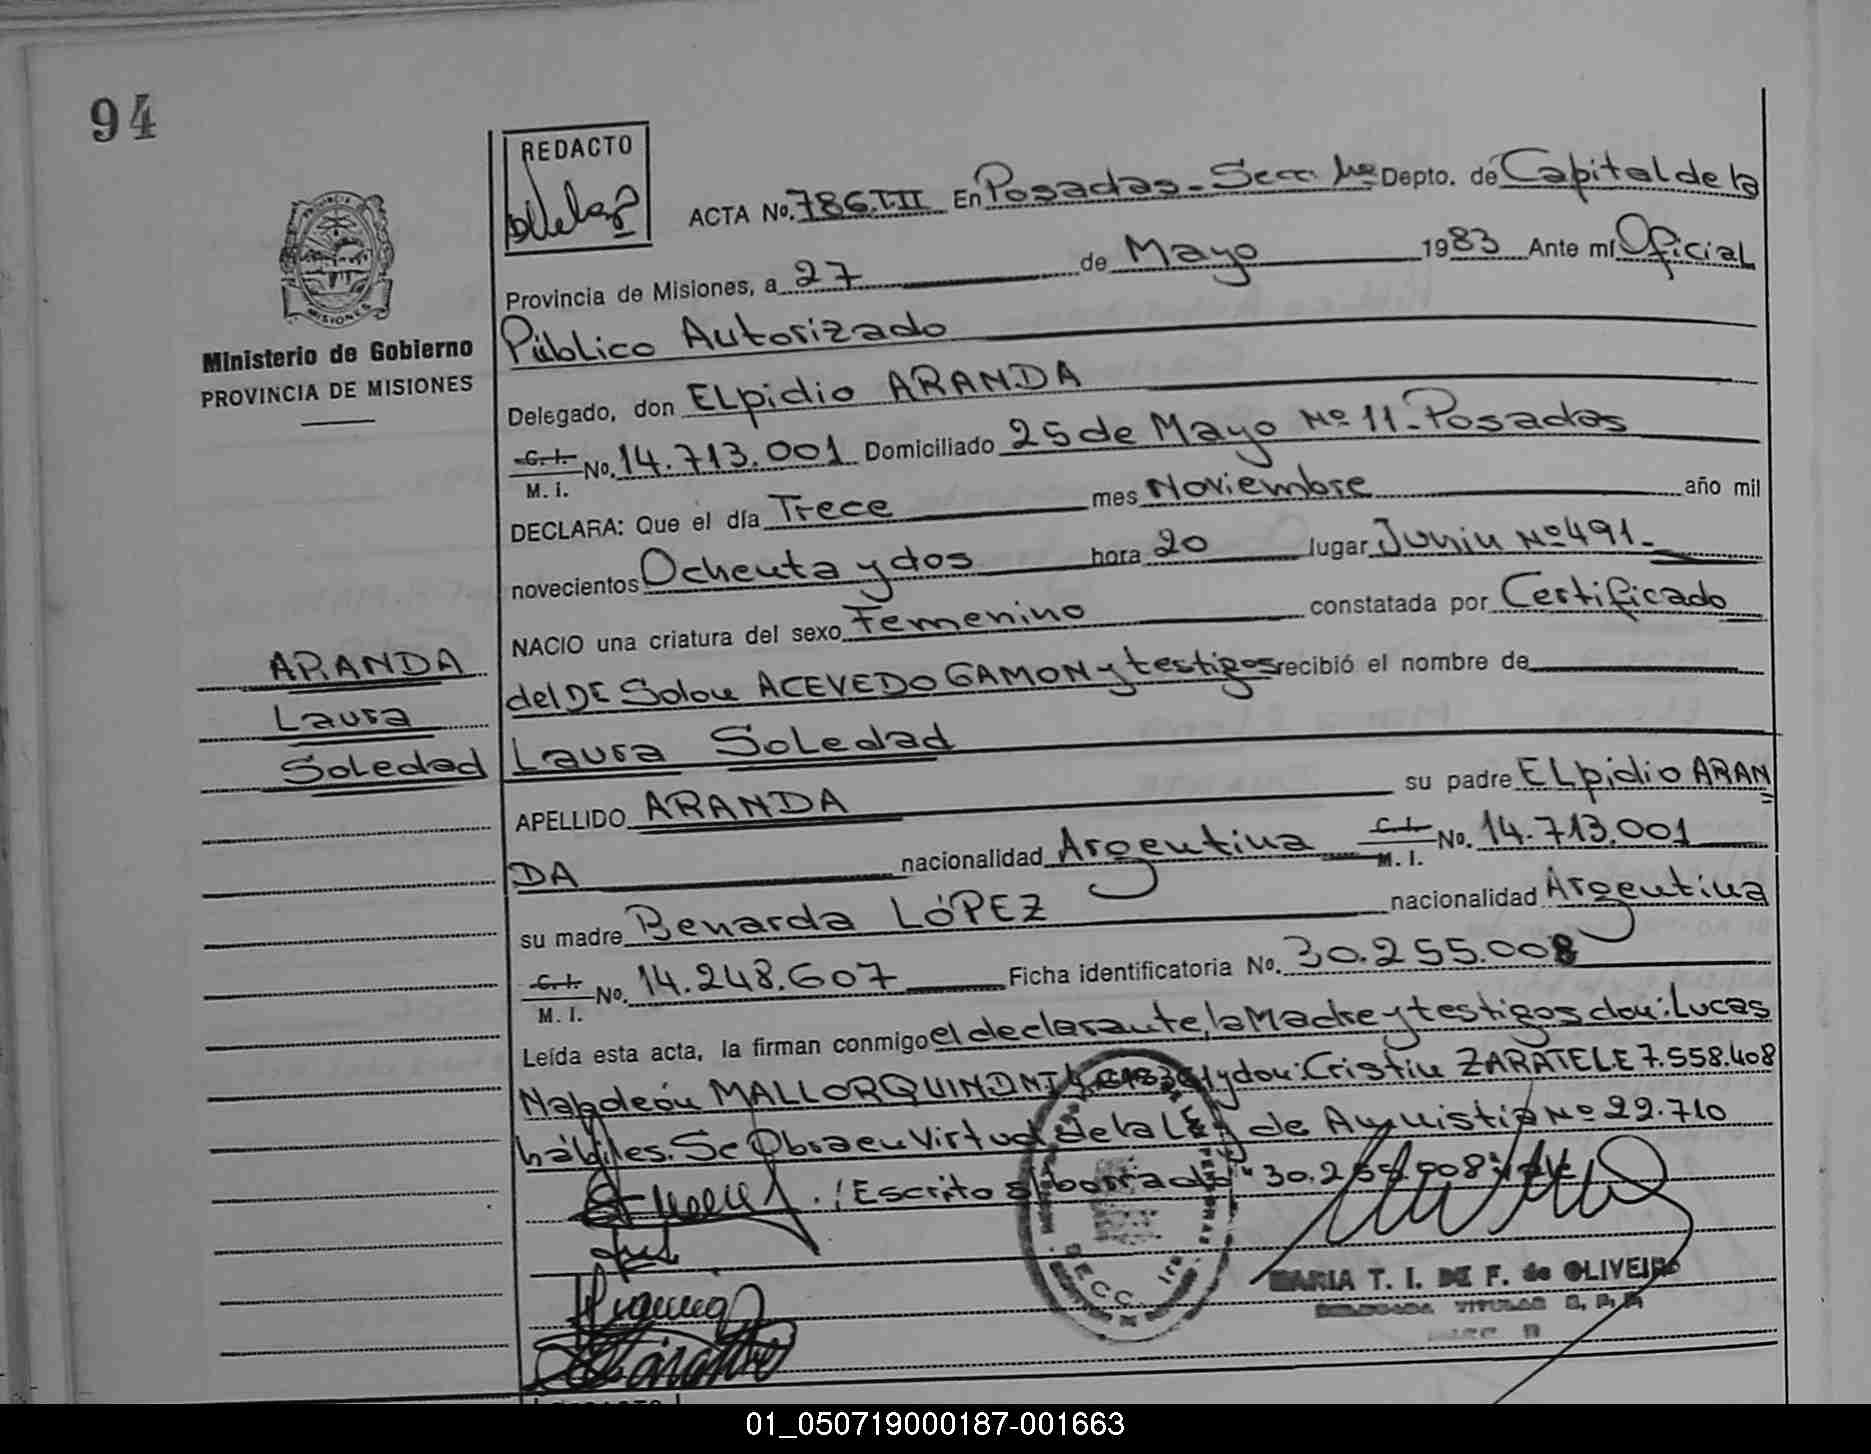 94
REDACTO
ACTA No. 786.T-II En Posadas - Secc. 1ª Depto. de Capital de la
Provincia de Misiones, a 27 de Mayo 1983 Ante mí Oficial
Público Autorizado
Ministerio de Gobierno
PROVINCIA DE MISIONES
Delegado, don ELpidio ARANDA
C. I. M. I. No. 14.713.001 Domiciliado 25 de Mayo Nº 11 - Posadas
DECLARA: Que el día Trece mes Noviembre año mil
novecientos Ochenta y dos hora 20 lugar Junin Nº 491.-
NACIO una criatura del sexo Femenino constatada por Certificado
del DR Solon ACEVEDO GAMON y testigos recibió el nombre de
ARANDA
Laura
Soledad
Laura Soledad
APELLIDO ARANDA su padre ELpidio ARAN
DA nacionalidad Argentina C. I. M. I. No. 14.713.001
su madre Benarda LóPEZ nacionalidad Argentina
C. I. M. I. No. 14.248.607 Ficha identificatoria No. 30.255.008
Leída esta acta, la firman conmigo el declarante, la Madre y testigos don: Lucas
Napoleón MALLORQUIN DNI y don: Cristin ZARATE LE 7.558.408
hábiles. Se Obra en Virtud de la Ley de Amnistia Nº 22.710
(Escrito s/borrado "30.255.008" vale
MARIA T. I. DE F. de OLIVEIRA
DELEGADA TITULAR R. P. P.
SECC
01_050719000187-001663